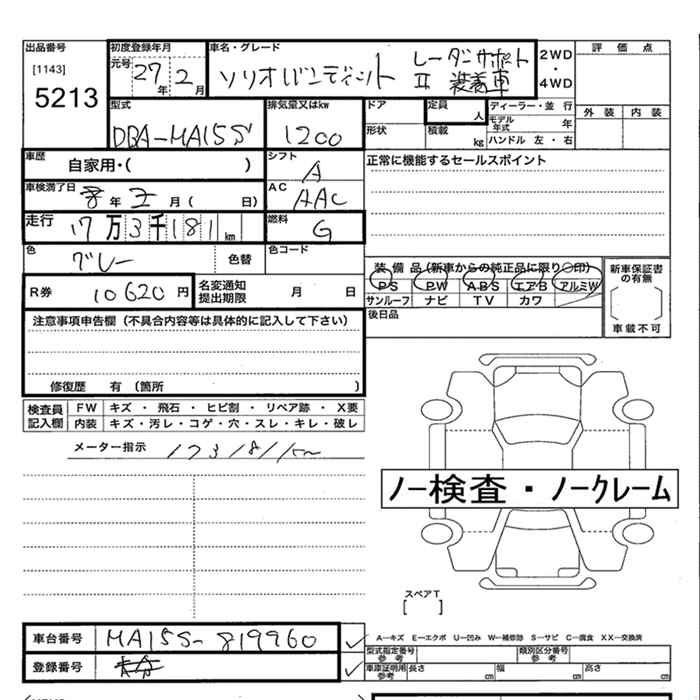 出品番号
[1143]
5213
初度登録年月
元号 27年 2月
車名・グレード
ソリオバンディット レーダーサポートⅡ 装着車
2WD
・
4WD
評価点
外装 内装
型式
DBA-MA15S
排気量又はkw
1200
ドア
形状
定員 人
積載 kg
ディーラー・並 行
モデル年式 年
ハンドル 左・右
車歴
自家用・( )
シフト
A
正常に機能するセールスポイント
車検満了日
年 月 ( 日)
AC
AAC
走行
17万3千181km
燃料
G
色
グレー
色替
色コード
装備品(新車からの純正品に限り○印)
PS PW ABS エアB アルミW
サンルーフ ナビ TV カワ
新車保証書の有無
車載不可
R券
10620円
名変通知提出期限 月 日
後日品
注意事項申告欄(不具合内容等は具体的に記入して下さい)
修復歴 有 〔箇所 〕
検査員記入欄
FW キズ ・ 飛石 ・ ヒビ割 ・ リペア跡 ・ X要
内装 キズ・汚レ・コゲ・穴・スレ・キレ・破レ
メーター指示 173181km
ノー検査・ノークレーム
スペアT
[ ]
車台番号 MA15S-819960
登録番号
A−キズ E−エクボ U−凹み W−補修跡 S−サビ C−腐食 XX−交換済
型式指定番号 参考
類別区分番号 参考
車庫証明用 参考 長さ cm 幅 cm 高さ cm